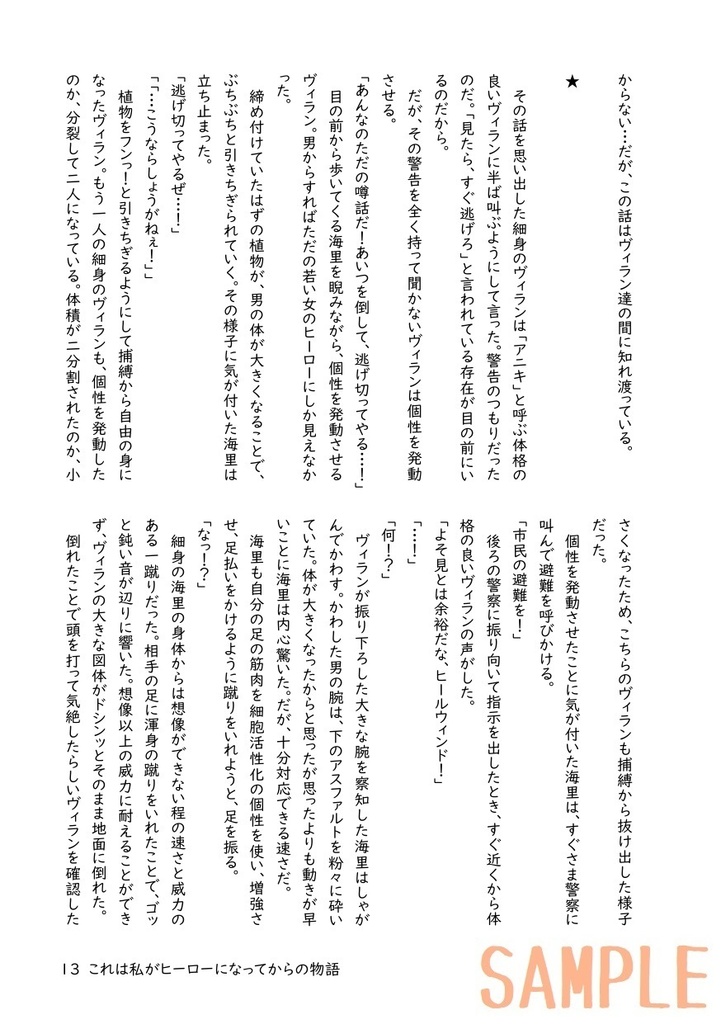 からない…だが、この話はヴィラン達の間に知れ渡っている。
★
その話を思い出した細身のヴィランは「アニキ」と呼ぶ体格の
良いヴィランに半ば叫ぶようにして言った。警告のつもりだった
のだ。「見たら、すぐ逃げろ」と言われている存在が目の前にい
るのだから。
だが、その警告を全く持って聞かないヴィランは個性を発動
させる。
「あんなのただの噂話だ!あいつを倒して、逃げ切ってやる…!」
目の前から歩いてくる海里を睨みながら、個性を発動させる
ヴィラン。男からすればただの若い女のヒーローにしか見えなか
った。
締め付けていたはずの植物が、男の体が大きくなることで、
ぶちぶちと引きちぎられていく。その様子に気が付いた海里は
立ち止まった。
「逃げ切ってやるぜ…!」
「「…こうならしょうがねぇ!」」
植物をフンっ!と引きちぎるようにして捕縛から自由の身に
なったヴィラン。もう一人の細身のヴィランも、個性を発動した
のか、分裂して二人になっている。体積が二分割されたのか、小
さくなったため、こちらのヴィランも捕縛から抜け出した様子
だった。
個性を発動させたことに気が付いた海里は、すぐさま警察に
叫んで避難を呼びかける。
「市民の避難を!」
後ろの警察に振り向いて指示を出したとき、すぐ近くから体
格の良いヴィランの声がした。
「よそ見とは余裕だな、ヒールウィンド!」
「…!」
「何!?」
ヴィランが振り下ろした大きな腕を察知した海里はしゃが
んでかわす。かわした男の腕は、下のアスファルトを粉々に砕い
ていた。体が大きくなったからと思ったが思ったよりも動きが早
いことに海里は内心驚いた。だが、十分対応できる速さだ。
海里も自分の足の筋肉を細胞活性化の個性を使い、増強さ
せ、足払いをかけるように蹴りをいれようと、足を振る。
「なっ!?」
細身の海里の身体からは想像ができない程の速さと威力の
ある一蹴りだった。相手の足に渾身の蹴りをいれたことで、ゴッ
と鈍い音が辺りに響いた。想像以上の威力に耐えることができ
ず、ヴィランの大きな図体がドシンッとそのまま地面に倒れた。
倒れたことで頭を打って気絶したらしいヴィランを確認した
13 これは私がヒーローになってからの物語
SAMPLE